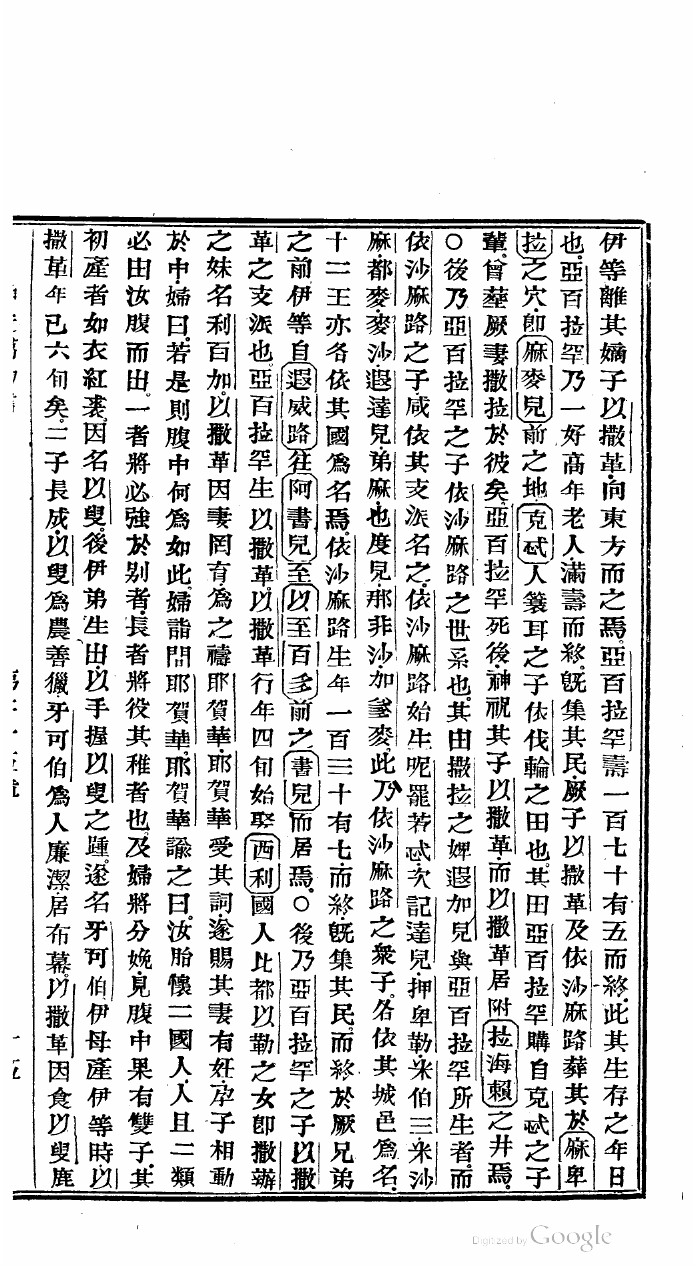 伊等離其嫡子以撒革向東方而之焉。亞百拉罕壽一百七十有五而終。此其生存之年日
也。亞百拉罕乃一好高年老人滿壽而終。旣集其民厥子以撒革及依沙麻路葬其於麻卑
拉之穴。卽麻麥兒前之地克忒人簔耳之子依伐輪之田也。其田亞百拉罕購自克忒之子
輩。曾塟厥妻撒拉於彼矣。亞百拉罕死後。神祝其子以撒革。而以撒革居附拉海賴之井焉。
○後乃亞百拉罕之子依沙麻路之世系也。其由撒拉之婢遐加兒與亞百拉罕所生者。而
依沙麻路之子咸依其支派名之。依沙麻路始生呢罷若忒。次記達兒押卑勒。米伯三。米沙
麻。都麥。麥沙。遐達兒。弟麻。也度兒。那非沙。加麥。此乃依沙麻路之衆子。各依其城邑爲名。
十二王亦各依其國爲名焉。依沙麻路生年一百三十有七而終。旣集其民。而終於厥兄弟
之前伊等自遐威路往阿書兒至以至百多前之書兒而居焉。○後乃亞百拉罕之子以撒
革之支派也。亞百拉罕生以撒革。以撒革行年四旬始娶西利國人比都以勒之女卽撒辦
之妹名利百加。以撒革因妻罔有爲之禱耶賀華。耶賀華受其詞遂賜其妻有妊。孕子相動
於中。婦曰。若是則腹中何爲如此。婦詣問耶賀華。耶賀華諭之曰。汝胎懷二國人。人且二類
必由汝腹而出。一者將必強於别者。長者將役其稚者也。及婦將分娩。見腹中果有雙子。其
初產者如衣紅裘。因名以叟。後伊弟生出。以手握以叟之踵。遂名牙可伯。伊母產伊等時以
撒革年已六旬矣。二子長成。以叟爲農善獵。牙可伯爲人廉潔居布幕。以撒革因食以叟鹿
Digitized by Google